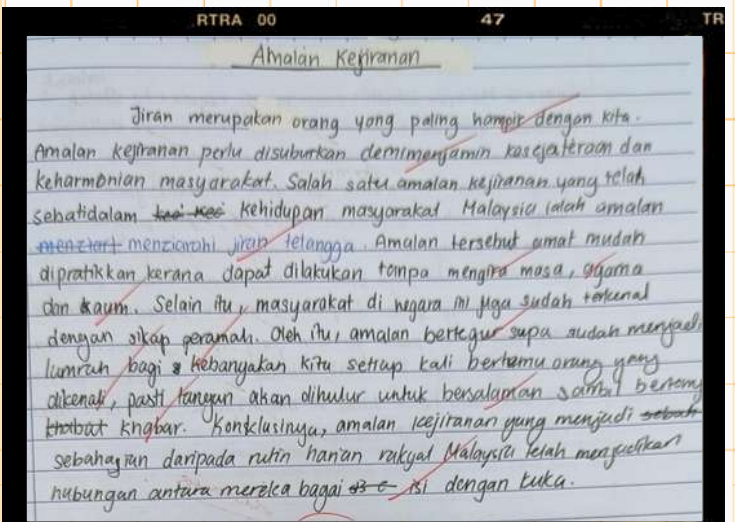 RTRA 00 47 TR
Amalan Kejiranan
Jiran merupakan orang yang paling hampir dengan kita.
Amalan kejiranan perlu disuburkan demi menjamin kesejateraan dan
keharmonian masyarakat. Salah satu amalan kejiranan yang telah
sebatidalam kehidupan masyarakat Malaysia ialah amalan
menziarahi jiran telangga. Amalan tersebut amat mudah
dipratikkan kerana dapat dilakukan tampa mengira masa, agama
dan kaum. Selain itu, masyarakat di negara ini juga sudah terkenal
dengan sikap peramah. Oleh itu, amalan bertegur sapa sudah menjadi
lumrah bagi kebanyakan kita setiap kali bertemu orang yang
dikenali, pasti tangan akan dihulur untuk bersalaman sambil bertany
khabar. Konklusinya, amalan kejiranan yang menjadi
sebahagian daripada rutin harian rakyat Malaysia telah menjadikan
hubungan antara mereka bagai isi dengan kuku.